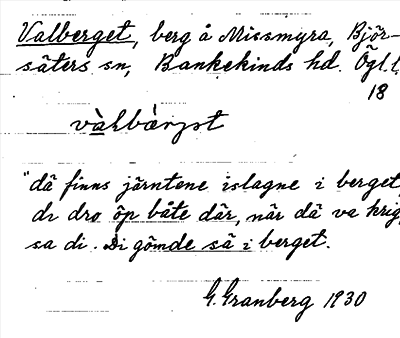 Valberget, berg å Missmyra, Björ-
säters sn, Bankekinds hd. Ögl.
18
vàlbærjət
"dä finns järntene islagne i berget
di dro öp båte där, när dä va krig,
sa di. Di gömde sä i berget.
G. Granberg 1930